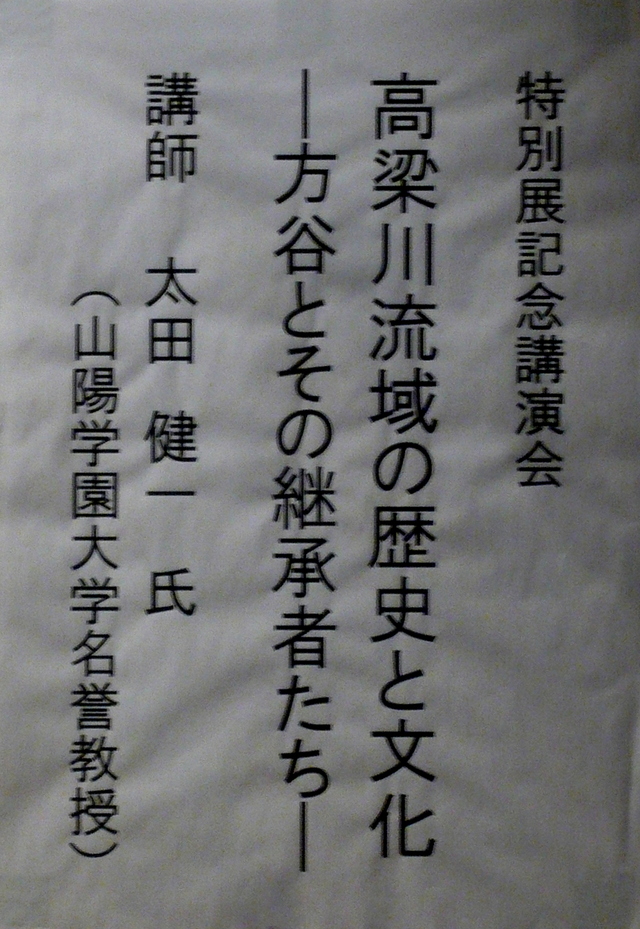 特別展記念講演会
高梁川流域の歴史と文化
―方谷とその継承者たち―
講師　太田　健一　氏
（山陽学園大学名誉教授）